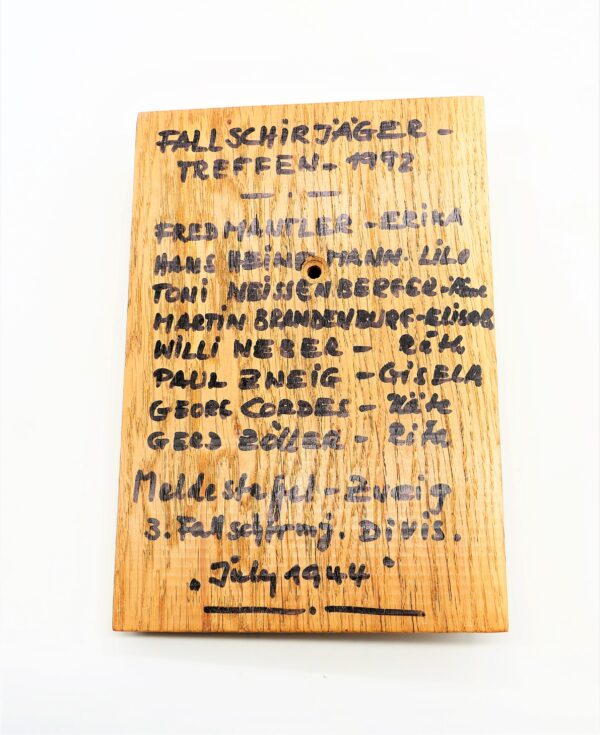 FALLSCHIRJÄGER-
TREFFEN-1992
FRED MANTLER-ERIKA
HANS HEINEMANN-LILO
TONI NEISSENBERGER-
MARTIN BRANDENBURG-
WILLI WEBER-
PAUL ZWEIG-GISELA
GEORG CORDES-Käte
GERD ZÖLLER-Rita
Meldestafel-Zweig
3. Fallschirmj. DIVIS.
"July 1944"